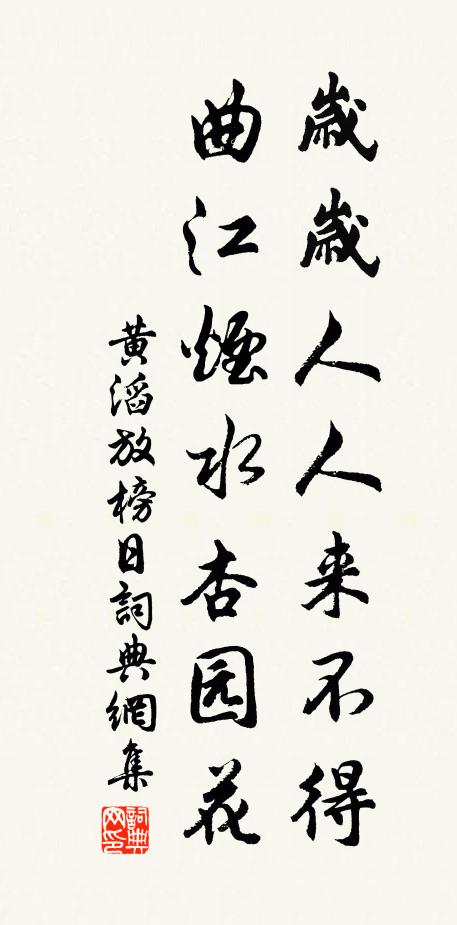 歲歲人人来不得
曲江煙水杏园花
黃滔放榜日詞典網集
詞典网印